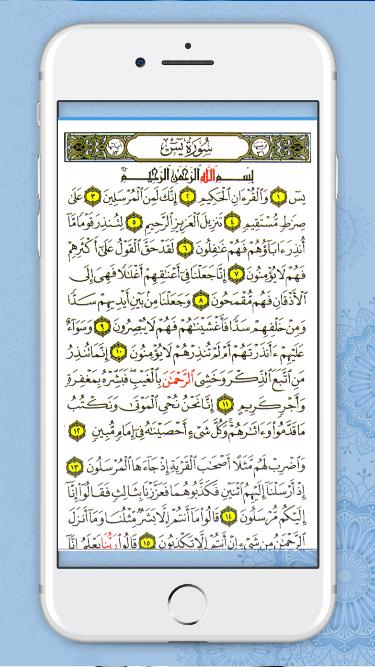 سُورَةُ يسٓ
بِسْمِ اللَّهِ الرَّحْمَٰنِ الرَّحِيمِ
يسٓ ١ وَالْقُرْءَانِ الْحَكِيمِ ٢ إِنَّكَ لَمِنَ الْمُرْسَلِينَ ٣ عَلَىٰ
صِرَٰطٍ مُّسْتَقِيمٍ ٤ تَنزِيلَ الْعَزِيزِ الرَّحِيمِ ٥ لِتُنذِرَ قَوْمًا مَّا
أُنذِرَ ءَابَآؤُهُمْ فَهُمْ غَٰفِلُونَ ٦ لَقَدْ حَقَّ الْقَوْلُ عَلَىٰٓ أَكْثَرِهِمْ
فَهُمْ لَا يُؤْمِنُونَ ٧ إِنَّا جَعَلْنَا فِىٓ أَعْنَٰقِهِمْ أَغْلَٰلًا فَهِىَ إِلَى
الْأَذْقَانِ فَهُم مُّقْمَحُونَ ٨ وَجَعَلْنَا مِنۢ بَيْنِ أَيْدِيهِمْ سَدًّا
وَمِنْ خَلْفِهِمْ سَدًّا فَأَغْشَيْنَٰهُمْ فَهُمْ لَا يُبْصِرُونَ ٩ وَسَوَآءٌ
عَلَيْهِمْ ءَأَنذَرْتَهُمْ أَمْ لَمْ تُنذِرْهُمْ لَا يُؤْمِنُونَ ١٠ إِنَّمَا تُنذِرُ
مَنِ اتَّبَعَ الذِّكْرَ وَخَشِىَ الرَّحْمَٰنَ بِالْغَيْبِ فَبَشِّرْهُ بِمَغْفِرَةٍ
وَأَجْرٍ كَرِيمٍ ١١ إِنَّا نَحْنُ نُحْىِ الْمَوْتَىٰ وَنَكْتُبُ
مَا قَدَّمُوا۟ وَءَاثَٰرَهُمْ وَكُلَّ شَىْءٍ أَحْصَيْنَٰهُ فِىٓ إِمَامٍ مُّبِينٍ ١٢
وَاضْرِبْ لَهُم مَّثَلًا أَصْحَٰبَ الْقَرْيَةِ إِذْ جَآءَهَا الْمُرْسَلُونَ ١٣
إِذْ أَرْسَلْنَآ إِلَيْهِمُ اثْنَيْنِ فَكَذَّبُوهُمَا فَعَزَّزْنَا بِثَالِثٍ فَقَالُوٓا۟ إِنَّآ
إِلَيْكُم مُّرْسَلُونَ ١٤ قَالُوا۟ مَآ أَنتُمْ إِلَّا بَشَرٌ مِّثْلُنَا وَمَآ أَنزَلَ
الرَّحْمَٰنُ مِن شَىْءٍ إِنْ أَنتُمْ إِلَّا تَكْذِبُونَ ١٥ قَالُوا۟ رَبُّنَا يَعْلَمُ إِنَّآ